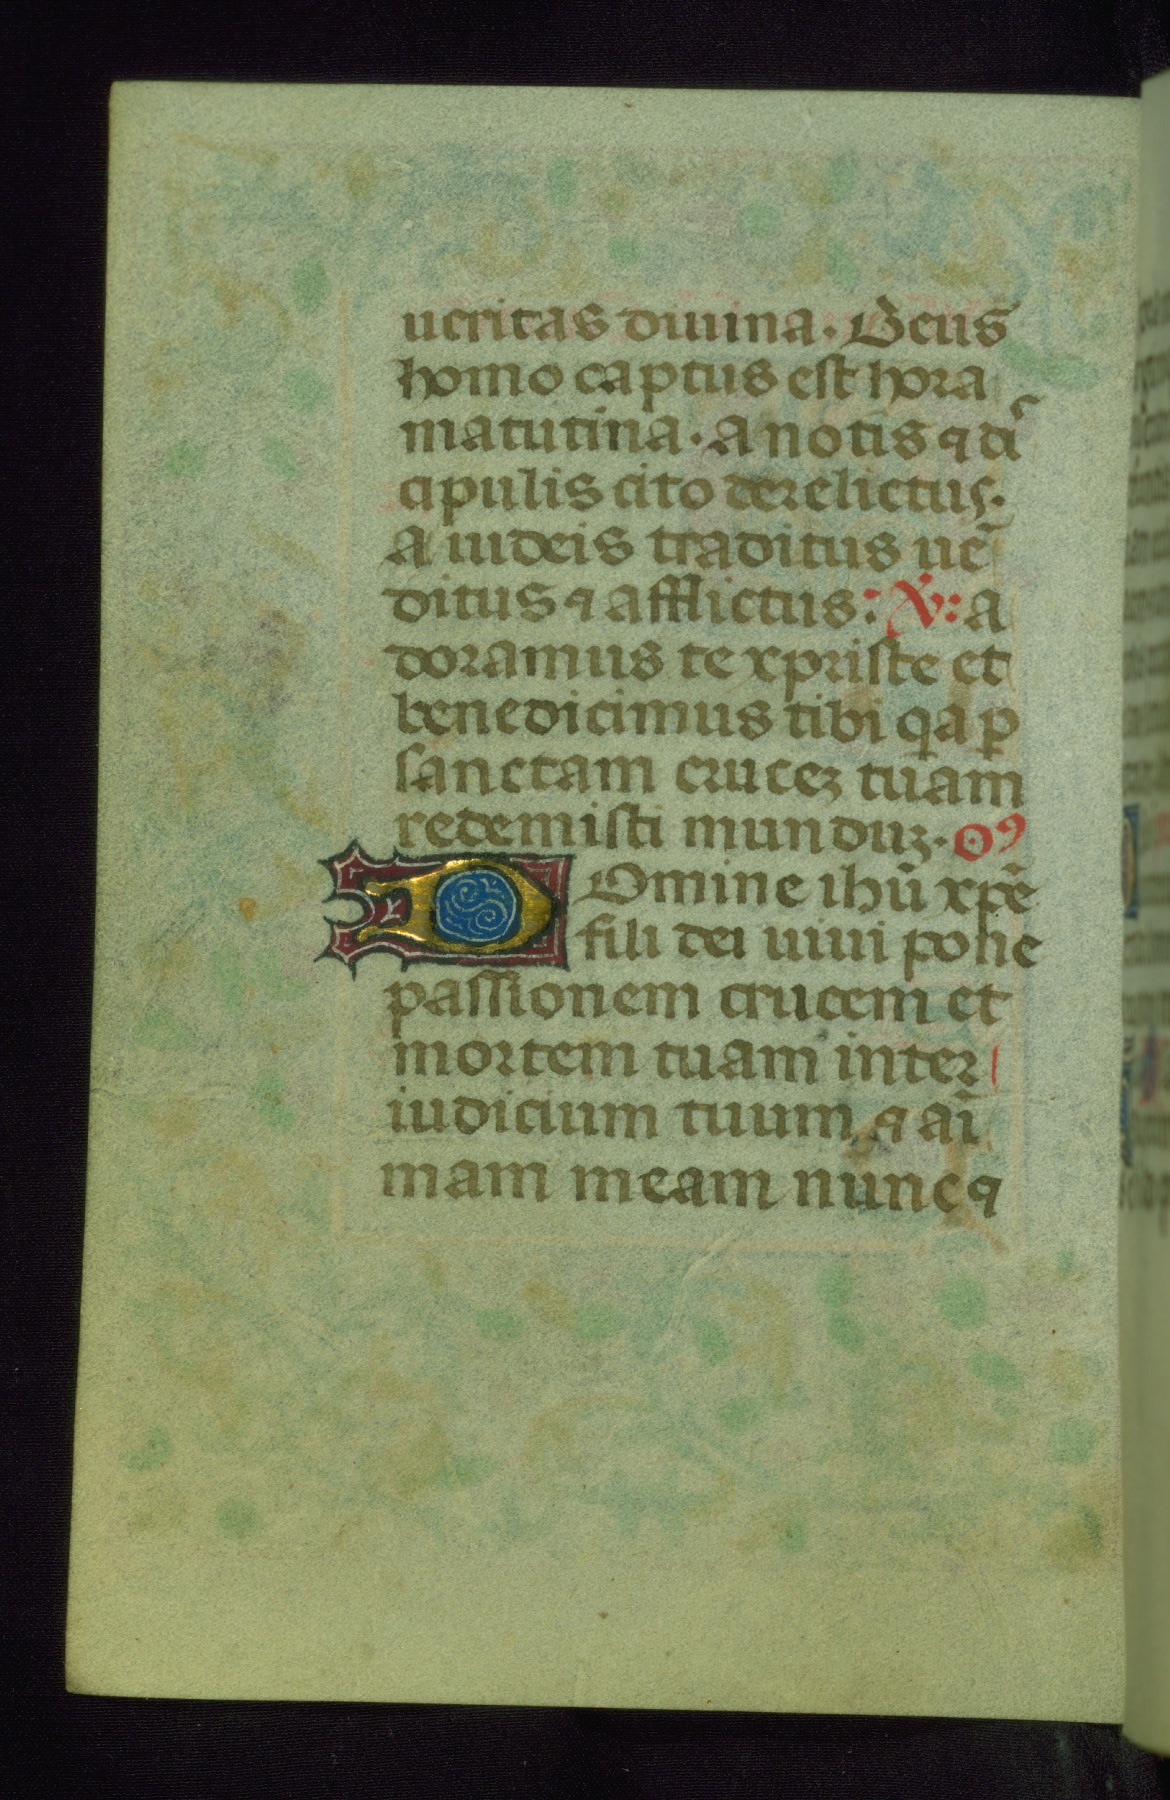 ueritas diuina. Deus
homo captus est hora
matutina. a notis ⁊ di
cipulis cito derelictus.
A iudeis traditus ue̅
ditus ⁊ afflictus: V: a
doramus te xpriste et
benedicimus tibi qa ꝑ
sanctam crucez tuam
redemisti munduz. Oꝰ
Domine ihu̅ xp̅e
fili dei uiui pone
passionem crucem et
mortem tuam inter
iudicium tuum ⁊ ai̅
mam meam nunc ⁊